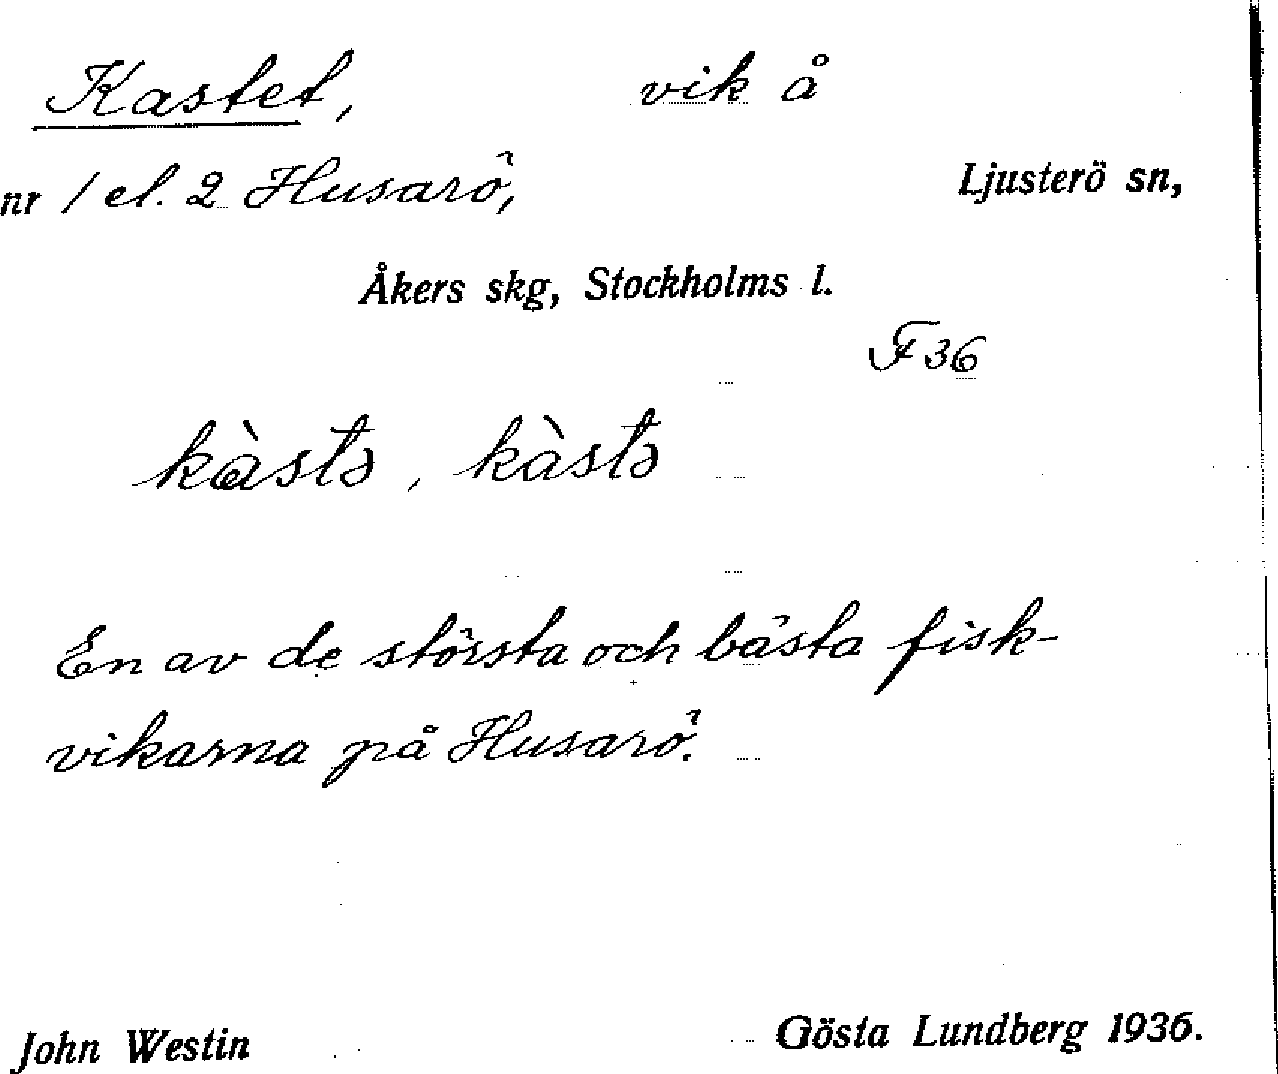 Kastet, vik å
nr 1 el. 2 Husarö, Ljusterö sn,
Åkers skg, Stockholms l.
F 36
kàstə, kàstə
En av de största och bästa fisk-
vikarna på Husarö.
John Westin Gösta Lundberg 1936.